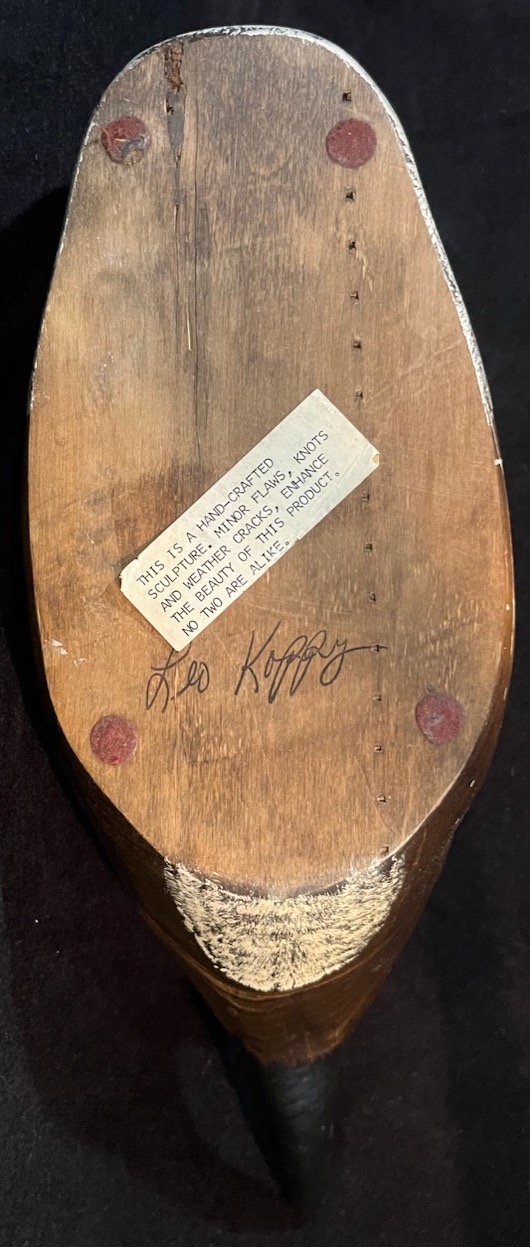 THIS IS A HAND-CRAFTED
SCULPTURE. MINOR FLAWS, KNOTS
AND WEATHER CRACKS, ENHANCE
THE BEAUTY OF THIS PRODUCT.
NO TWO ARE ALIKE.
Leo Koppy